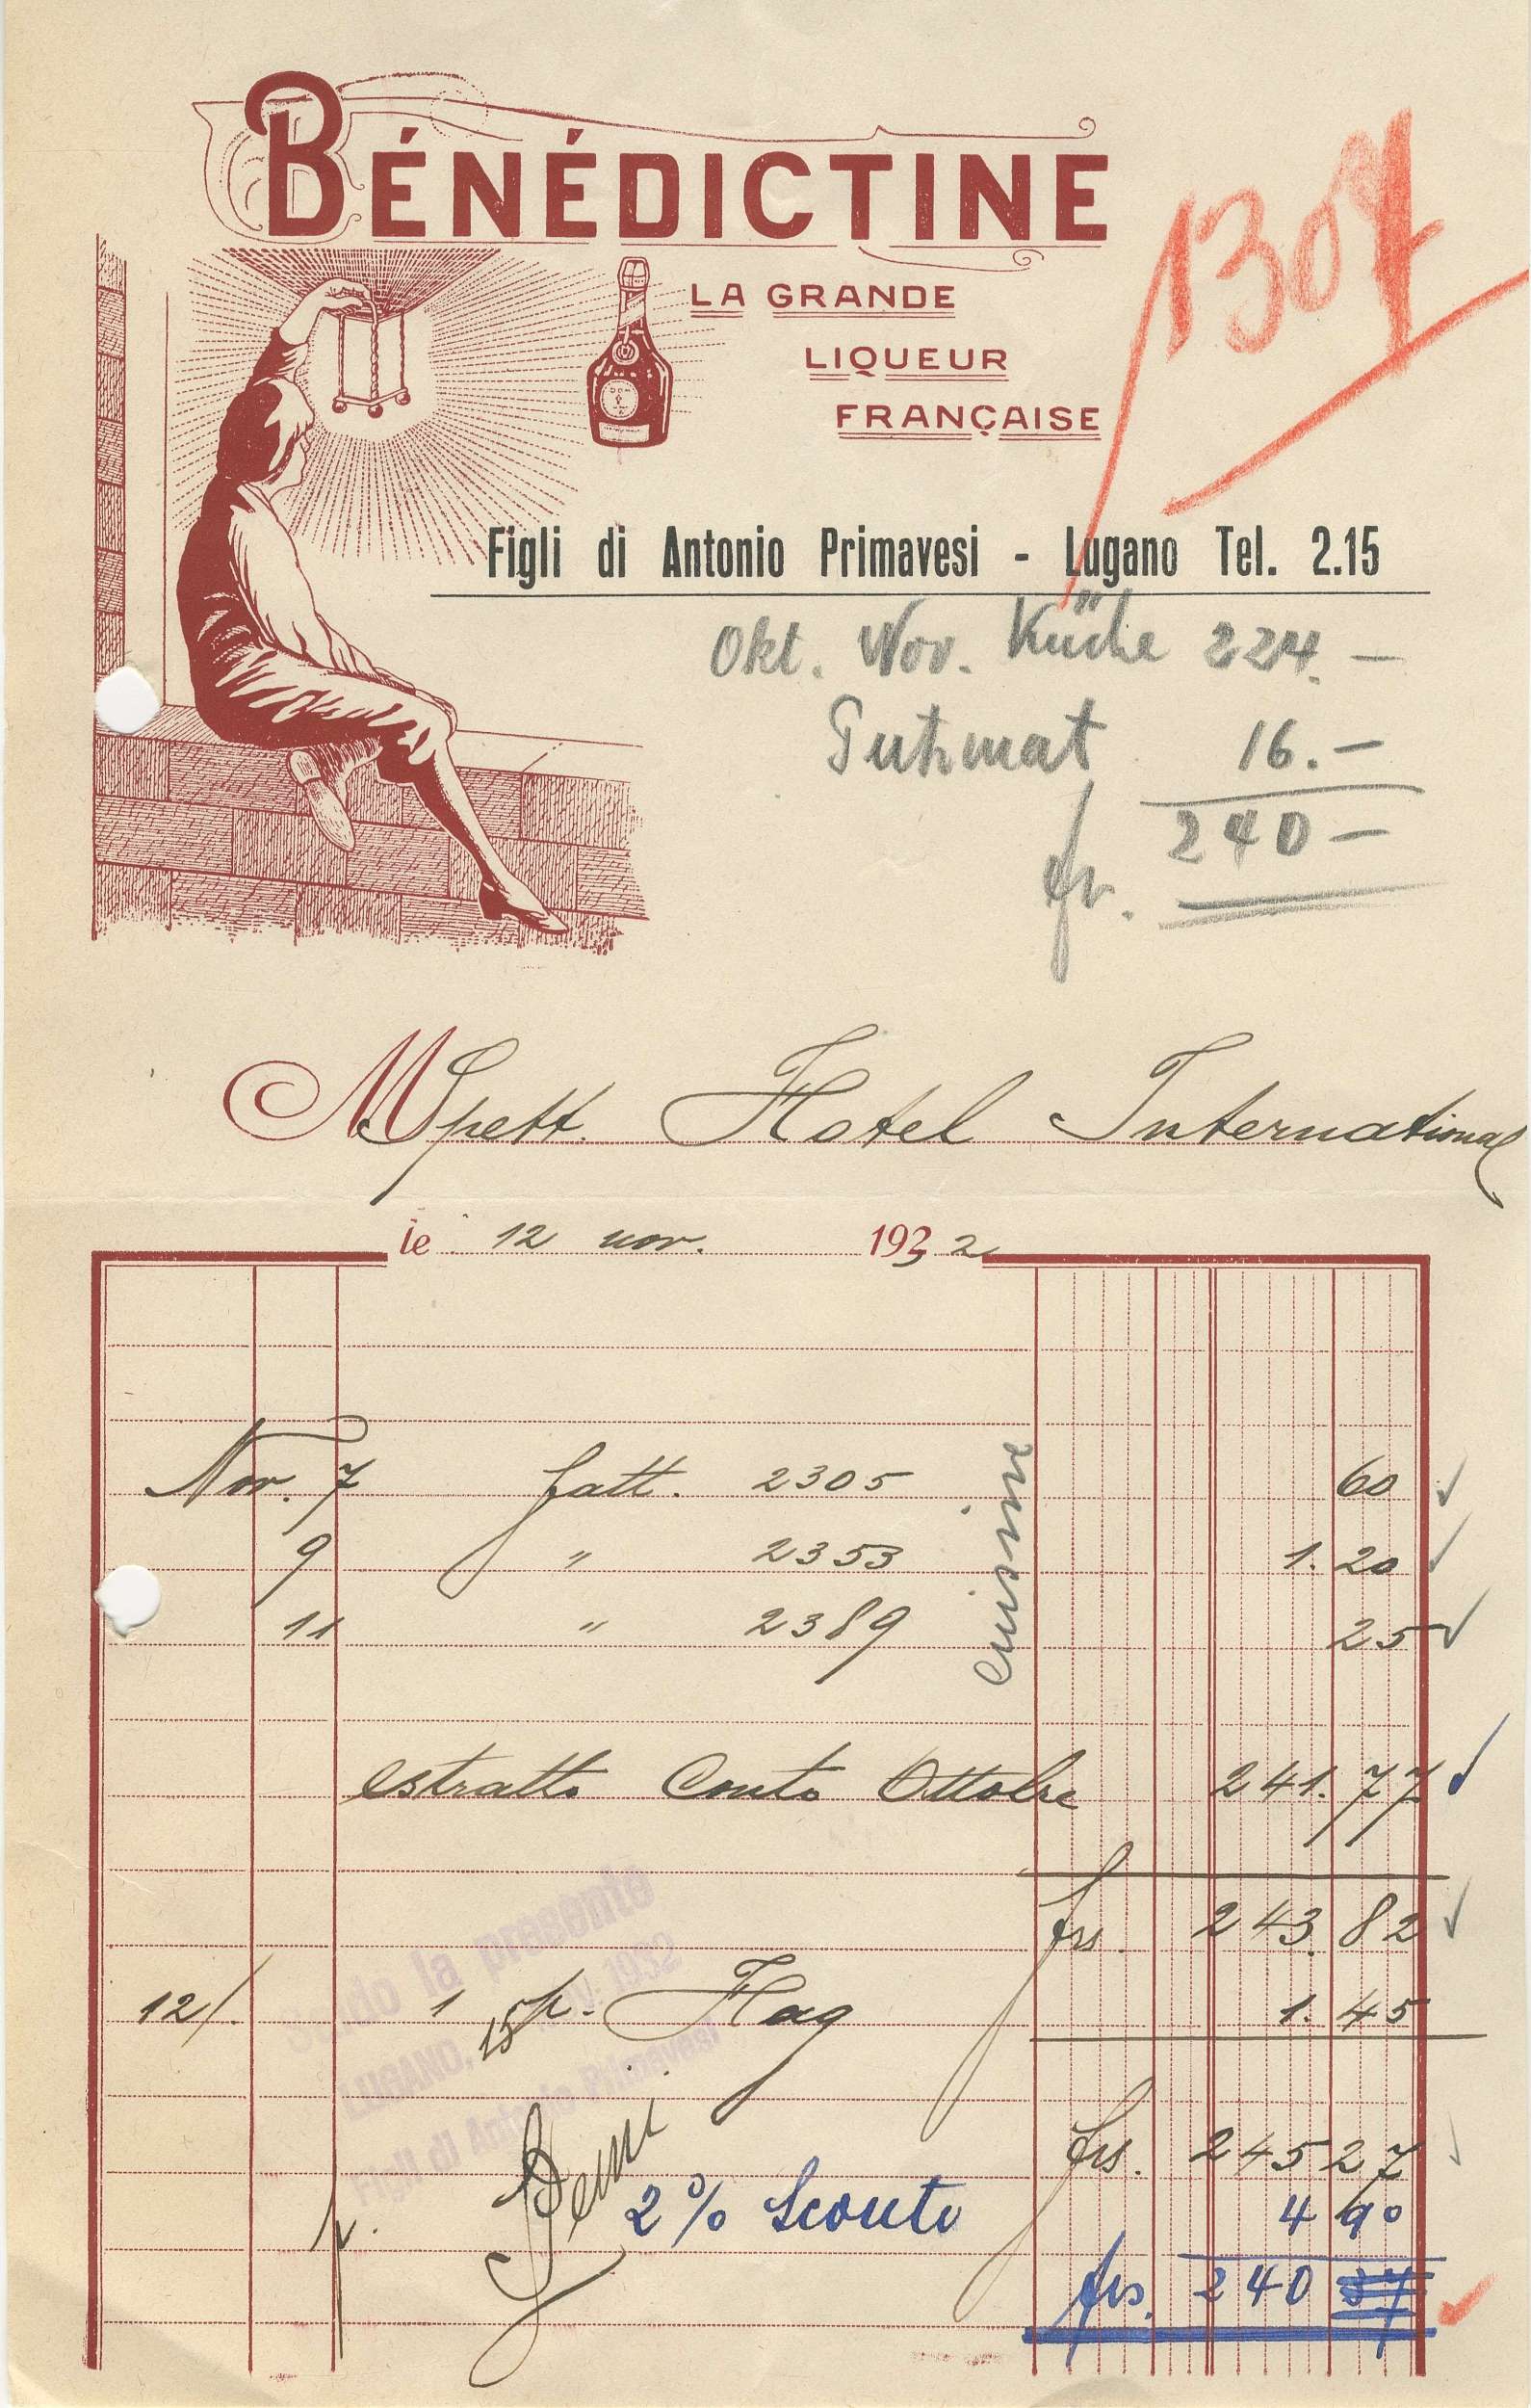 BÉNÉDICTINE
1307
LA GRANDE
LIQUEUR
FRANÇAISE
Figli di Antonio Primavesi - Lugano Tel. 2.15
Okt. Nov. Küche 224.—
Putzmat 16.—
fr. 240—
M Spett. Hotel International
le 12 nov. 1932
Nov. 7 fatt. 2305 60
9 " 2353 1.20
11 " 2389 25
cuisine
estratto Conto Ottobre 241.77
frs. 243.82
12/. 1 p. Hag 1.45
la presente
1932
LUGANO,
Figli di Antonio Primavesi
frs. 245 27
p.
2% Sconto 4 90
frs. 240 37